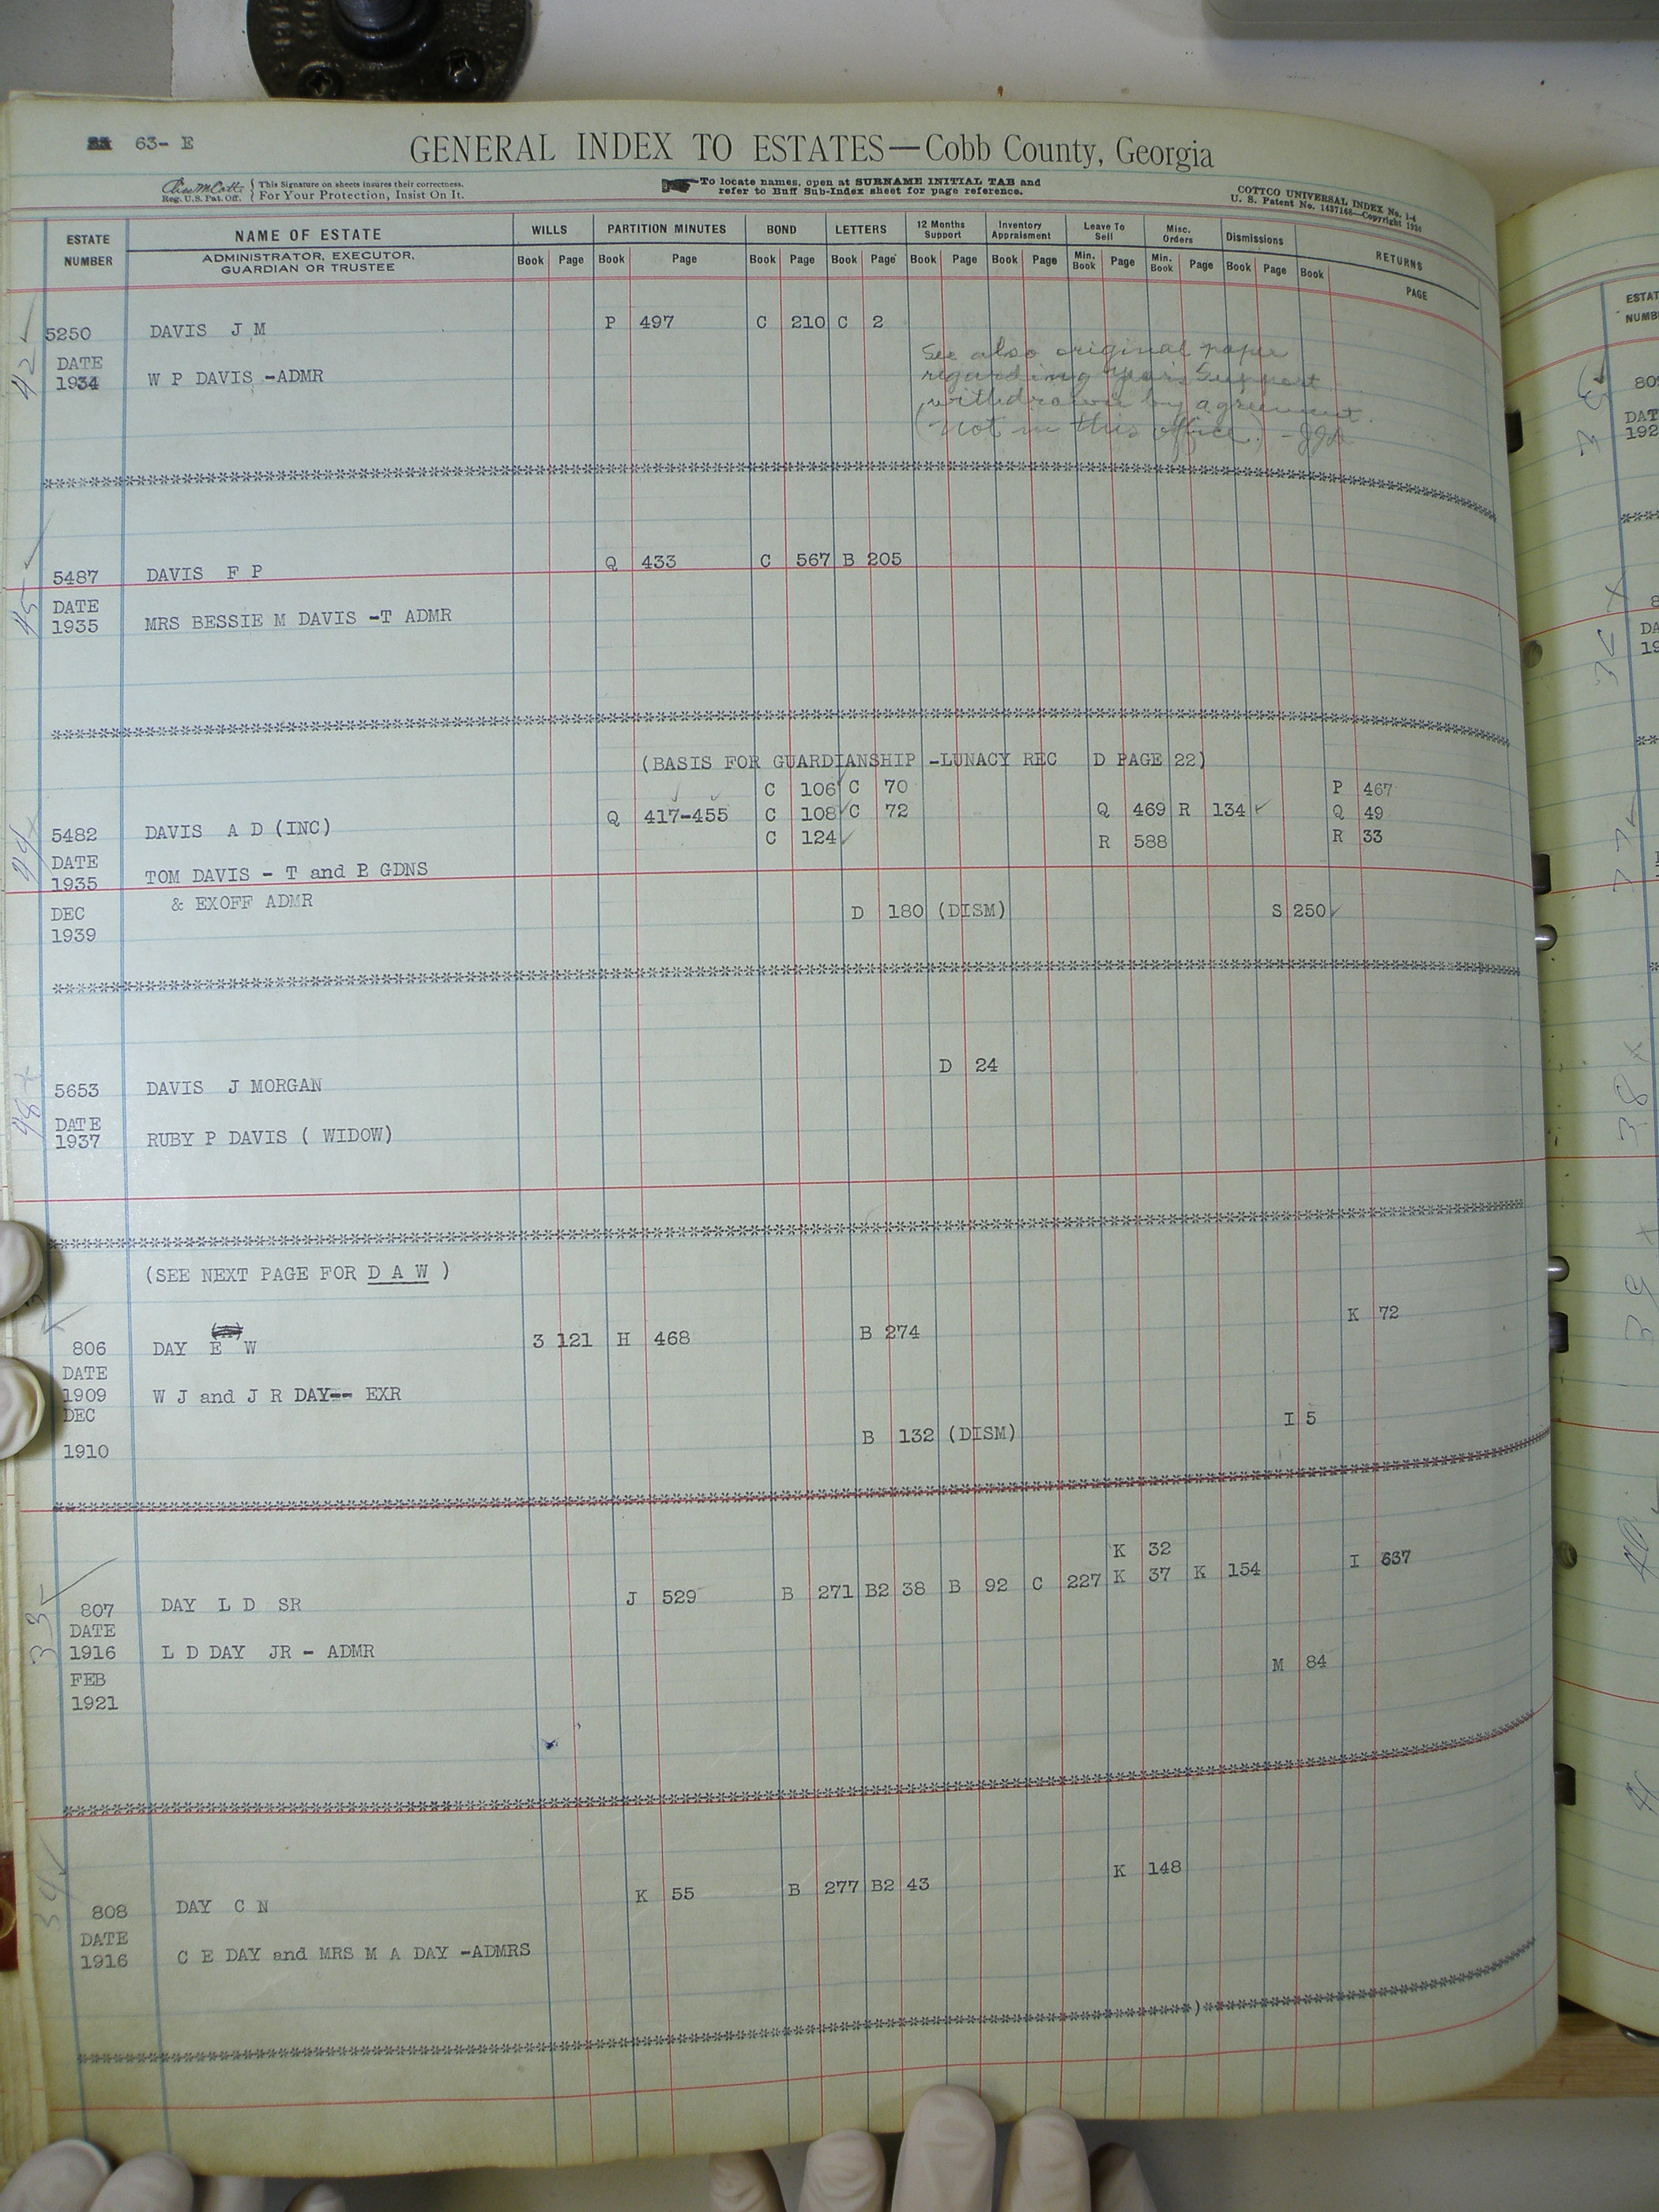 63- E
GENERAL INDEX TO ESTATES—Cobb County, Georgia
Reg. U.S. Pat. Off.
This Signature on sheets insures their correctness.
For Your Protection, Insist On It.
To locate names, open at SURNAME INITIAL TAB and
refer to Buff Sub-Index sheet for page reference.
COTTCO UNIVERSAL INDEX No. 1-4
U. S. Patent No. 1437148—Copyright 1936
ESTATE NUMBER NAME OF ESTATE WILLS PARTITION MINUTES BOND LETTERS 12 Months Support Inventory Appraisment Leave To Sell Misc. Orders Dismissions RETURNS
ADMINISTRATOR, EXECUTOR, GUARDIAN OR TRUSTEE Book Page Book Page Book Page Book Page Book Page Book Page Min. Book Page Min. Book Page Book Page Book PAGE
42
5250 DAVIS J M P 497 C 210 C 2
DATE
1934 W P DAVIS -ADMR
See also original paper
regarding years Support
withdrawn by agreement.
(Not in this office.)
45
5487 DAVIS F P Q 433 C 567 B 205
DATE
1935 MRS BESSIE M DAVIS -T ADMR
(BASIS FOR GUARDIANSHIP -LUNACY REC D PAGE 22)
C 106 C 70 P 467
5482 DAVIS A D (INC) Q 417-455 C 108 C 72 Q 469 R 134 Q 49
C 124 R 588 R 33
DATE
1935 TOM DAVIS - T and P GDNS
& EXOFF ADMR
DEC D 180 (DISM) S 250
1939
D 24
48
5653 DAVIS J MORGAN
DATE
1937 RUBY P DAVIS ( WIDOW)
(SEE NEXT PAGE FOR D A W )
K 72
806 DAY E W 3 121 H 468 B 274
DATE
1909 W J and J R DAY-- EXR
DEC I 5
1910 B 132 (DISM)
K 32
33
807 DAY L D SR J 529 B 271 B2 38 B 92 C 227 K 37 K 154 I 637
DATE
1916 L D DAY JR - ADMR
FEB M 84
1921
34
808 DAY C N K 55 B 277 B2 43 K 148
DATE
1916 C E DAY and MRS M A DAY -ADMRS
ESTAT
NUMB
809
DAT
192
38
39